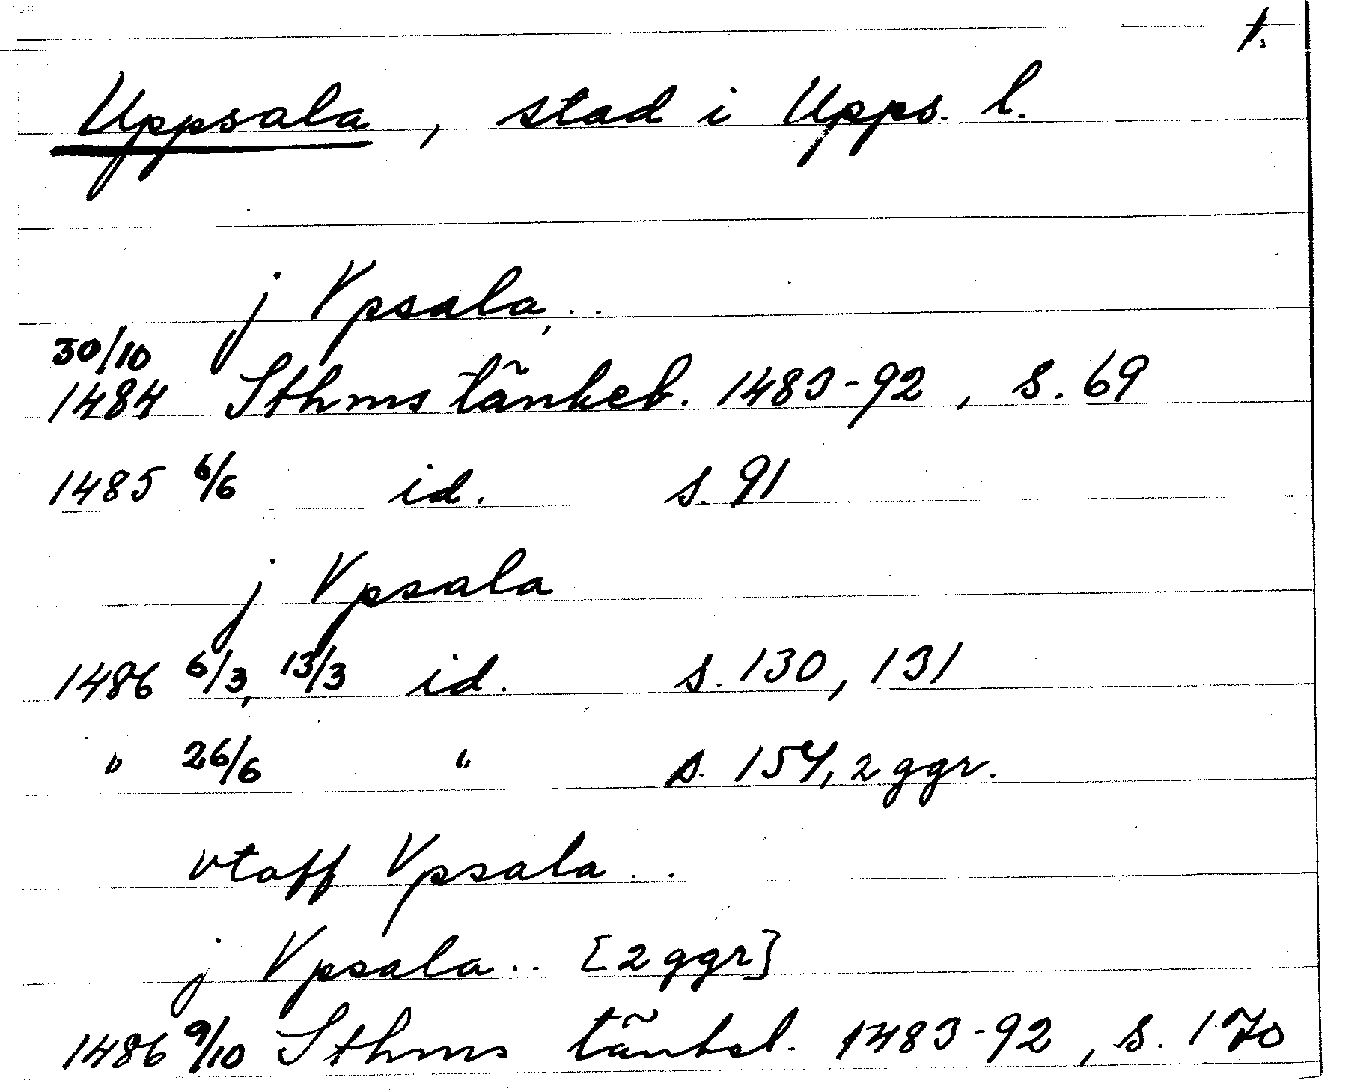 1.
Uppsala, stad i Upps. l.
j Vpsala..
30/10
1484 Sthms tänkeb. 1483-92, s. 69
1485 6/6 id. s. 91
j Vpsala
1486 6/3, 13/3 id. s. 130, 131
" 26/6 " s. 154, 2 ggr.
vtaff Vpsala..
j Vpsala.. [2 ggr]
1486 9/10 Sthms tänkeb. 1483-92, s. 170